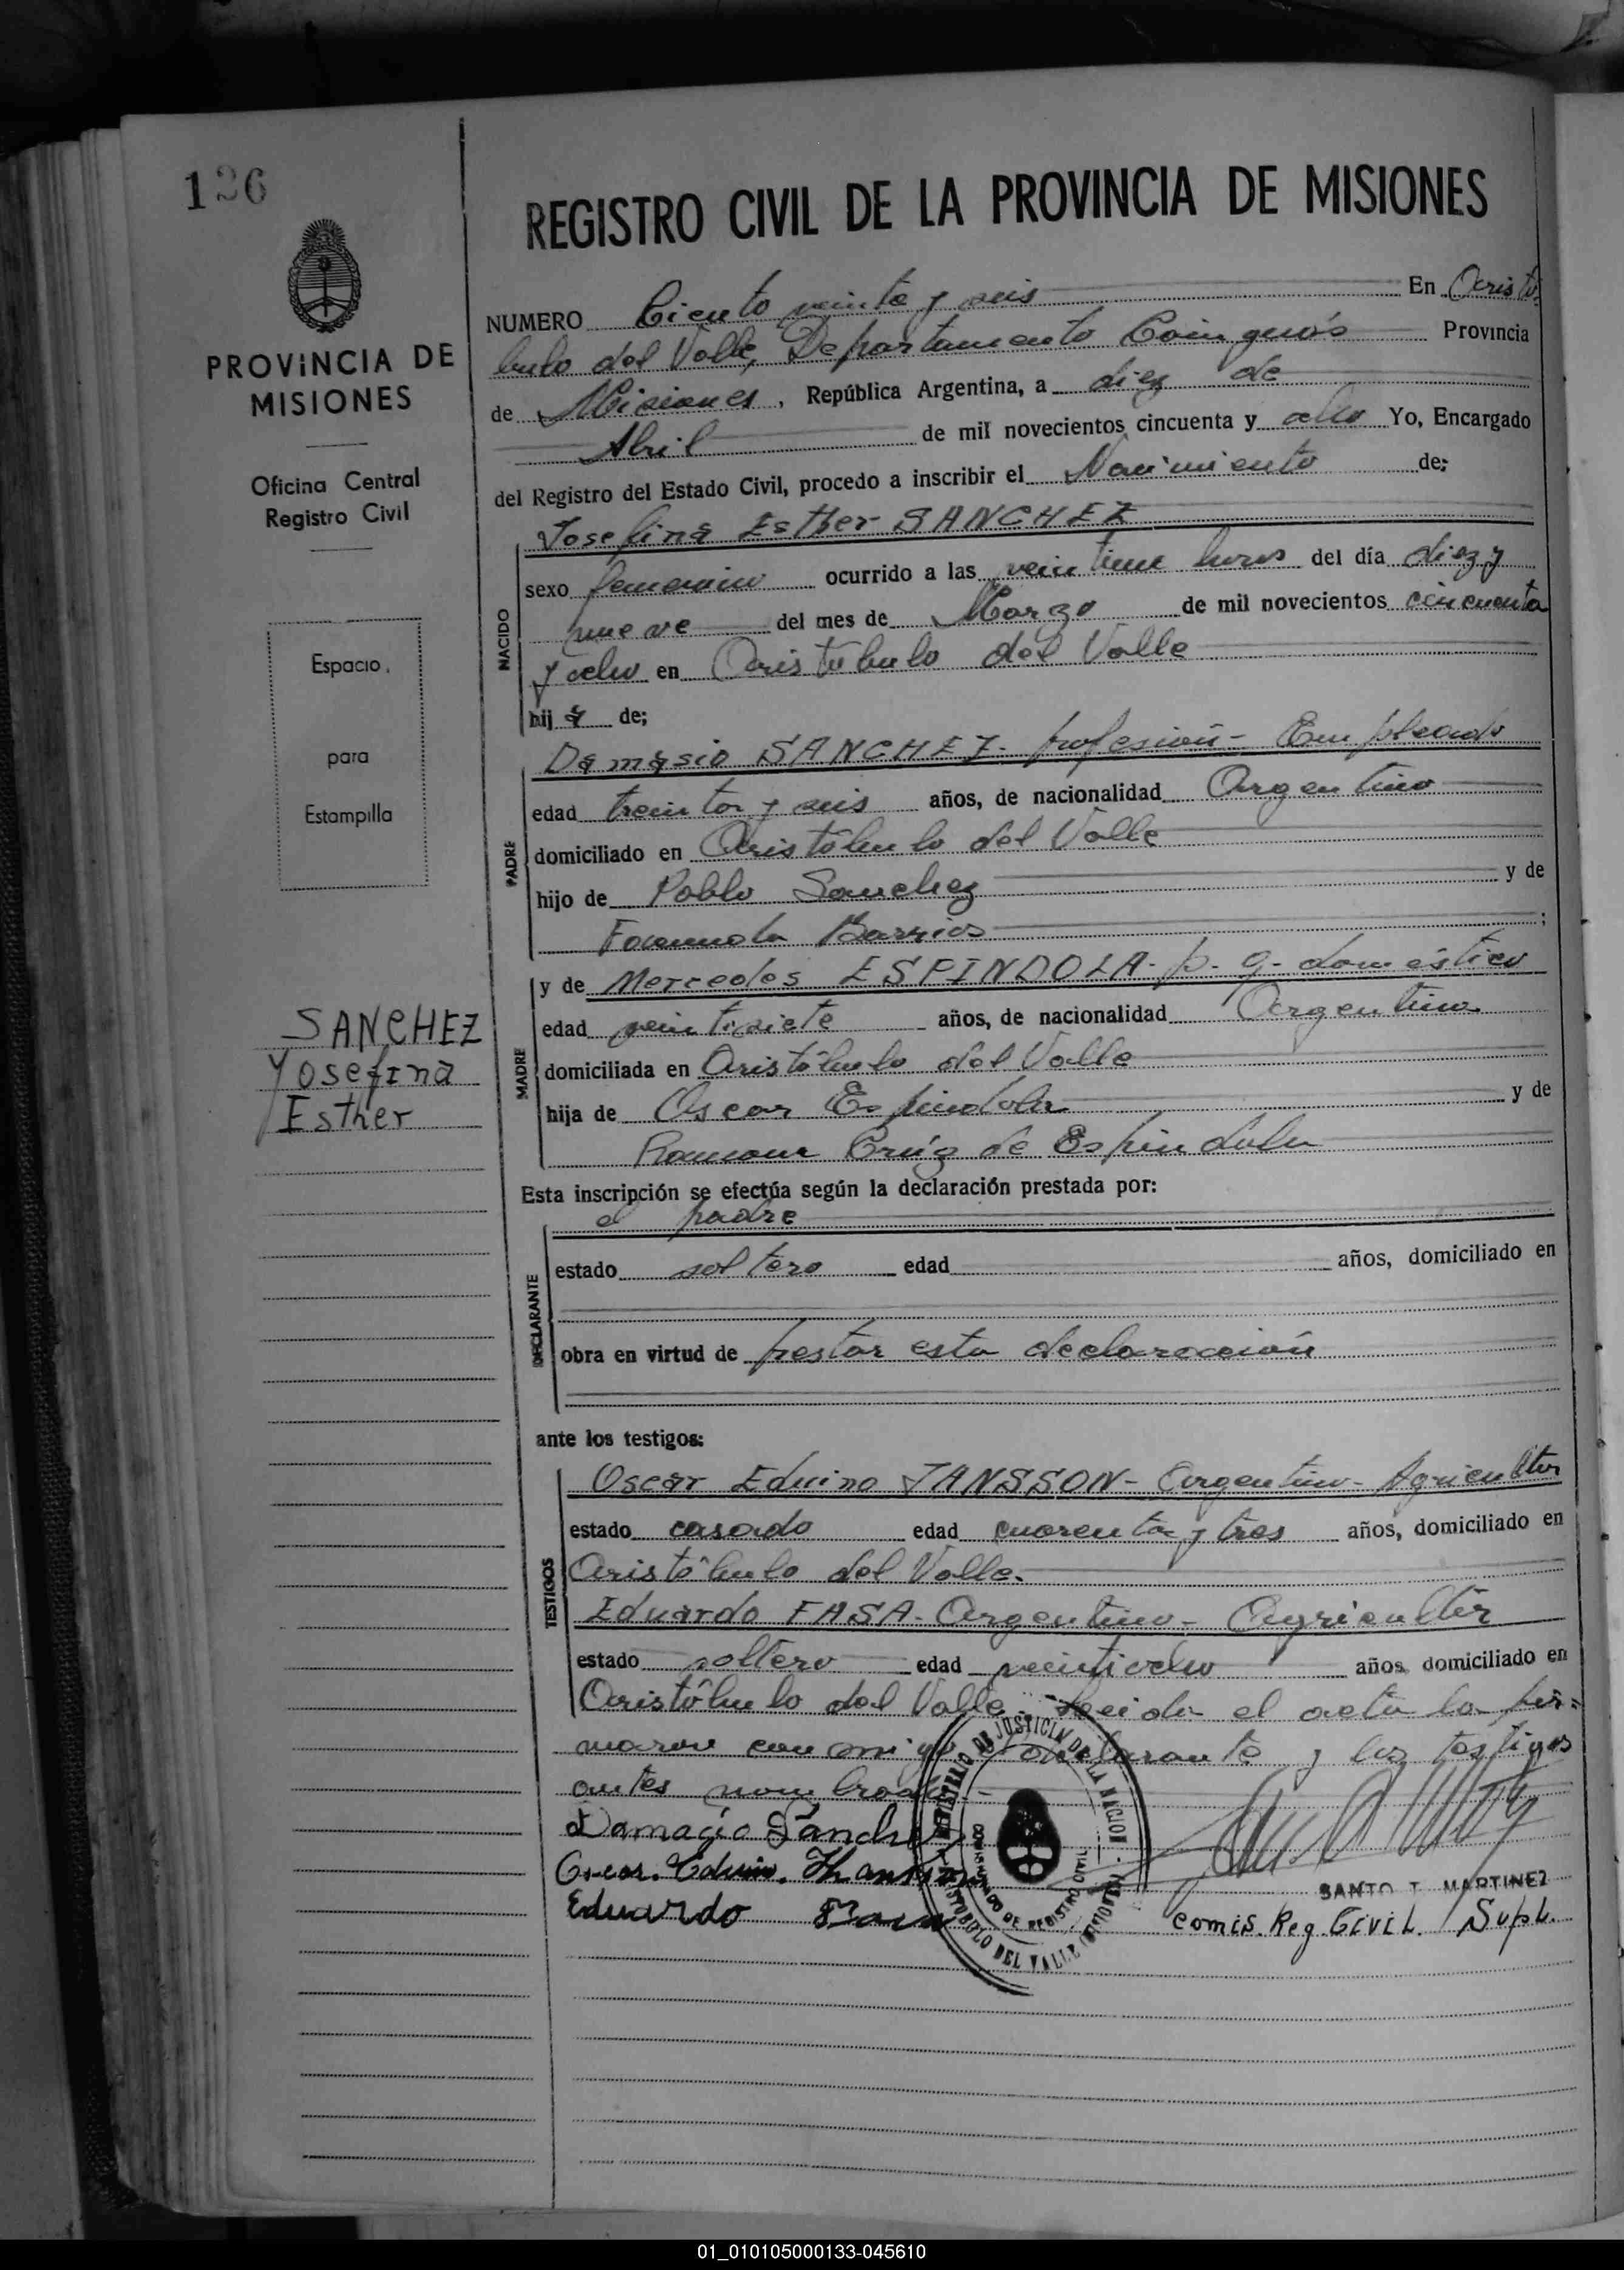 126
PROVINCIA DE
MISIONES
Oficina Central
Registro Civil
Espacio
para
Estampilla
SANCHEZ
Josefina
Esther
REGISTRO CIVIL DE LA PROVINCIA DE MISIONES
NUMERO Ciento veinte y seis En Aristó-
bulo del Valle, Departamento Cainguás Provincia
de Misiones, República Argentina, a diez de
Abril de mil novecientos cincuenta y ocho Yo, Encargado
del Registro del Estado Civil, procedo a inscribir el Nacimiento de:
NACIDO
Josefina Esther SANCHEZ
sexo femenino ocurrido a las horas del día diez y
nueve del mes de Marzo de mil novecientos cincuenta
y ocho en Aristóbulo del Valle
hija de;
PADRE
Damasio SANCHEZ- profesión- Empleado
edad treinta y seis años, de nacionalidad Argentino
domiciliado en Aristóbulo del Valle
hijo de Pablo Sanchez y de
Barrios;
MADRE
y de Mercedes ESPINDOLA- p. q. doméstico
edad veintisiete años, de nacionalidad Argentina
domiciliada en Aristóbulo del Valle
hija de Oscar Espindola y de
Ramona Crúz de Espindola
Esta inscripción se efectúa según la declaración prestada por:
DECLARANTE
el padre
estado soltero edad años, domiciliado en
obra en virtud de prestar esta declaración
ante los testigos:
TESTIGOS
Oscar Eduino JANSSON- Argentino- Agricultor
estado casado edad cuarenta y tres años, domiciliado en
Aristóbulo del Valle.
Eduardo FASA- Argentino- Agricultor
estado soltero edad veintiocho años, domiciliado en
Aristóbulo del Valle. Leida el acta la fir=
maron conmigo el declarante y los testigos
antes nombrados.-
Damacio Sanchez
Oscar Eduino
Eduardo
MINISTERIO DE JUSTICIA DE LA NACION
ARISTOBULO DEL VALLE (MISIONES)
DE REGISTRO CIVIL
SANTO T. MARTINEZ
Comis. Reg. Civil. Supl.
01_010105000133-045610